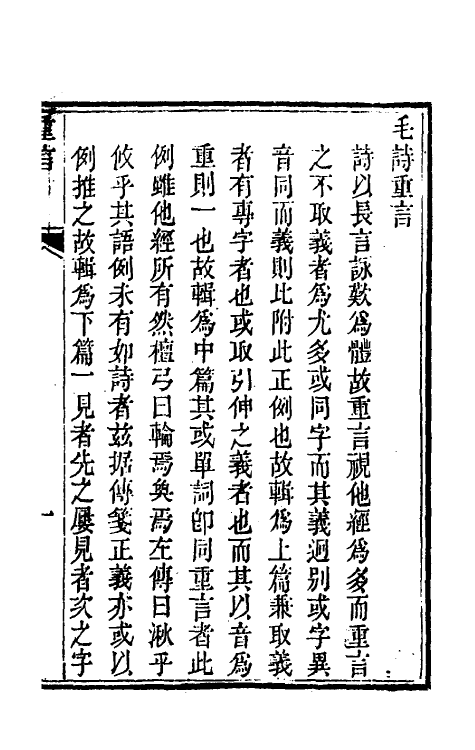 毛詩重言
詩以長言詠歎爲體故重言視他經爲多而重言
之不取義者爲尤多或同字而其義迥別或字異
音同而義則比附此正例也故輯爲上篇兼取義
者有專字者也或取引伸之義者也而其以音爲
重則一也故輯爲中篇其或單詞卽同重言者此
例雖他經所有然檀弓曰輪焉奐焉左傳曰湫乎
攸乎其語例未有如詩者茲据傳箋正義亦或以
例推之故輯爲下篇一見者先之屢見者次之字
重言
一